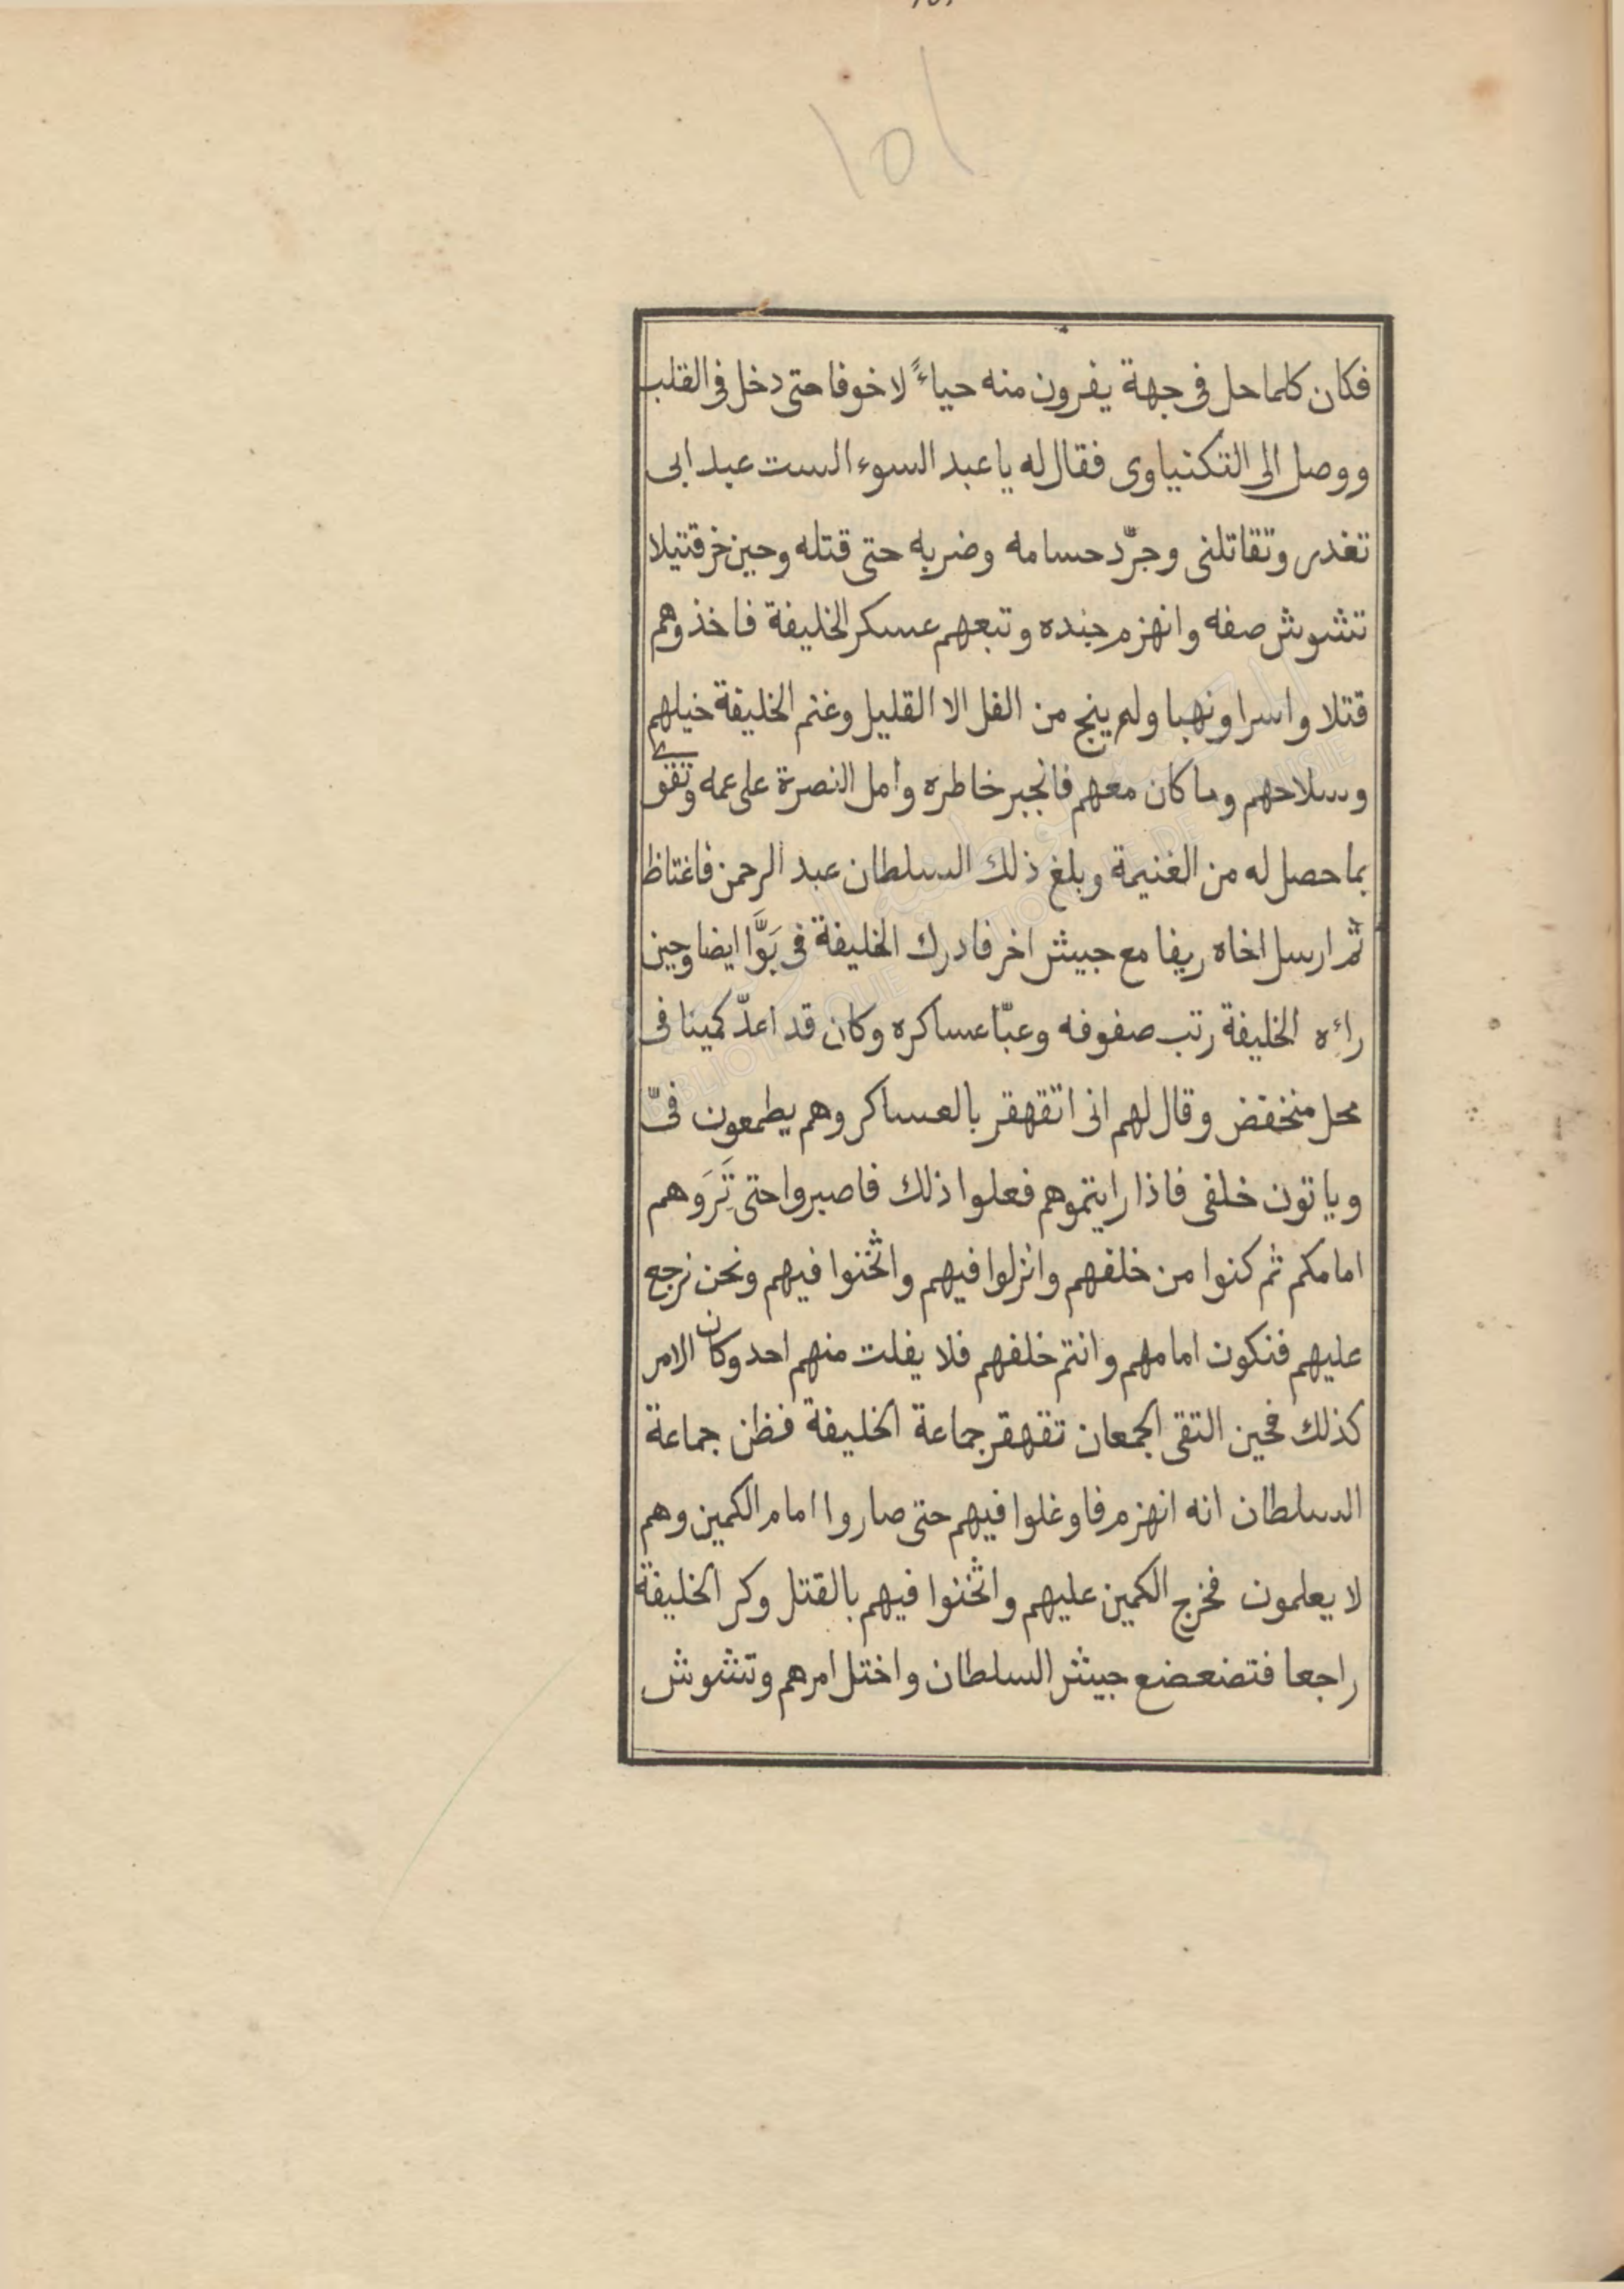 ١٥١
فكان كلما حل فى جهة يفرون منه حياءً لا خوفا حتى دخل فى القلب
ووصل الى التكنياوى فقال له يا عبد السوء الست عبد ابى
تغدر وتقاتلنى وجرّد حسامه وضربه حتى قتله وحين خر قتيلا
تشوش صفه وانهزم جنده وتبعهم عسكر الخليفة فاخذوهم
قتلا واسرا ونهبا ولم ينج من الفل الا القليل وغنم الخليفة خيلهم
وسلاحهم وما كان معهم فانجبر خاطره وامل النصرة على عمه وتقوى
بما حصل له من الغنيمة وبلغ ذلك السلطان عبد الرحمن فاغتاظ
ثم ارسل اخاه ريفا مع جيش اخر فادرك الخليفة فى بَوَّا ايضا وحين
راءه الخليفة رتب صفوفه وعبّا عساكره وكان قد اعدّ كمينا فى
محل منخفض وقال لهم انى اتقهقر بالعساكر وهم يطمعون فىّ
وياتون خلفى فاذا رايتموهم فعلوا ذلك فاصبروا حتى تَرَوهم
امامكم ثم كنوا من خلفهم وانزلوا فيهم واثخنوا فيهم ونحن نرجع
عليهم فنكون امامهم وانتم خلفهم فلا يفلت منهم احد وكان الامر
كذلك فحين التقى الجمعان تقهقر جماعة الخليفة فظن جماعة
السلطان انه انهزم فاوغلوا فيهم حتى صاروا امام الكمين وهم
لا يعلمون فخرج الكمين عليهم واثخنوا فيهم بالقتل وكر الخليفة
راجعا فتضعضع جيش السلطان واختل امرهم وتشوش